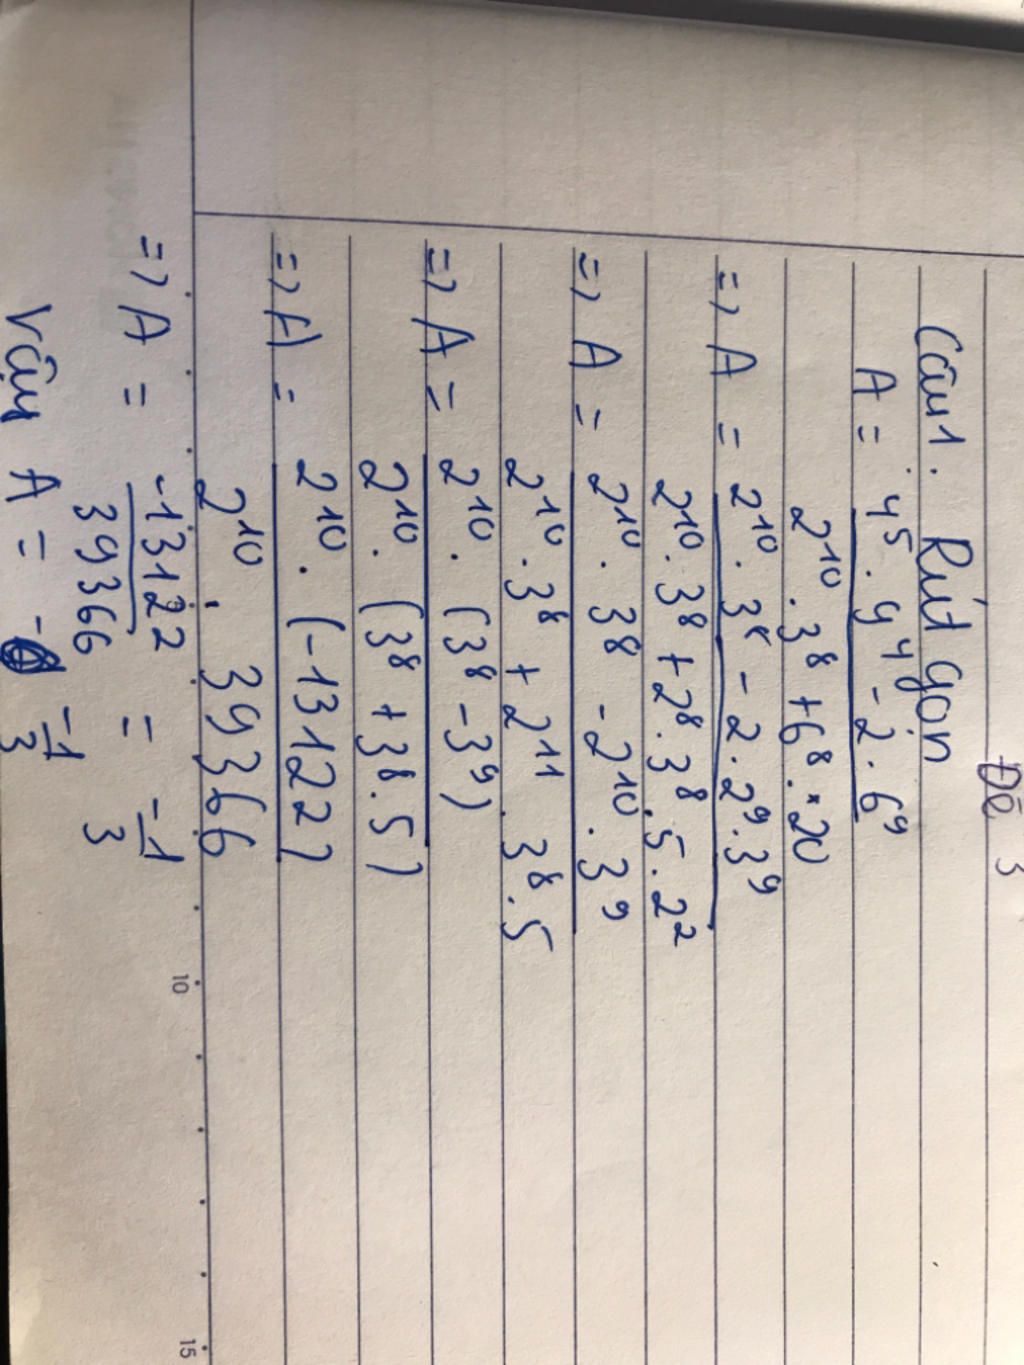 Đề 3
Câu 1. Rút gọn
A = 4⁵ . 9⁴ - 2 . 6⁹
2¹⁰ . 3⁸ + 6⁸ . 20
=> A = 2¹⁰ . 3⁸ - 2 . 2⁹ . 3⁹
2¹⁰ . 3⁸ + 2⁸ . 3⁸ . 5 . 2²
=> A = 2¹⁰ . 3⁸ - 2¹⁰ . 3⁹
2¹⁰ . 3⁸ + 2¹¹ . 3⁸ . 5
=> A = 2¹⁰ . (3⁸ - 3⁹)
2¹⁰ . (3⁸ + 3⁸ . 5)
=> A = 2¹⁰ . (-13122)
2¹⁰ . 39366
=> A = -13122 = -1
39366 3
Vậy A = -1
3
10
15